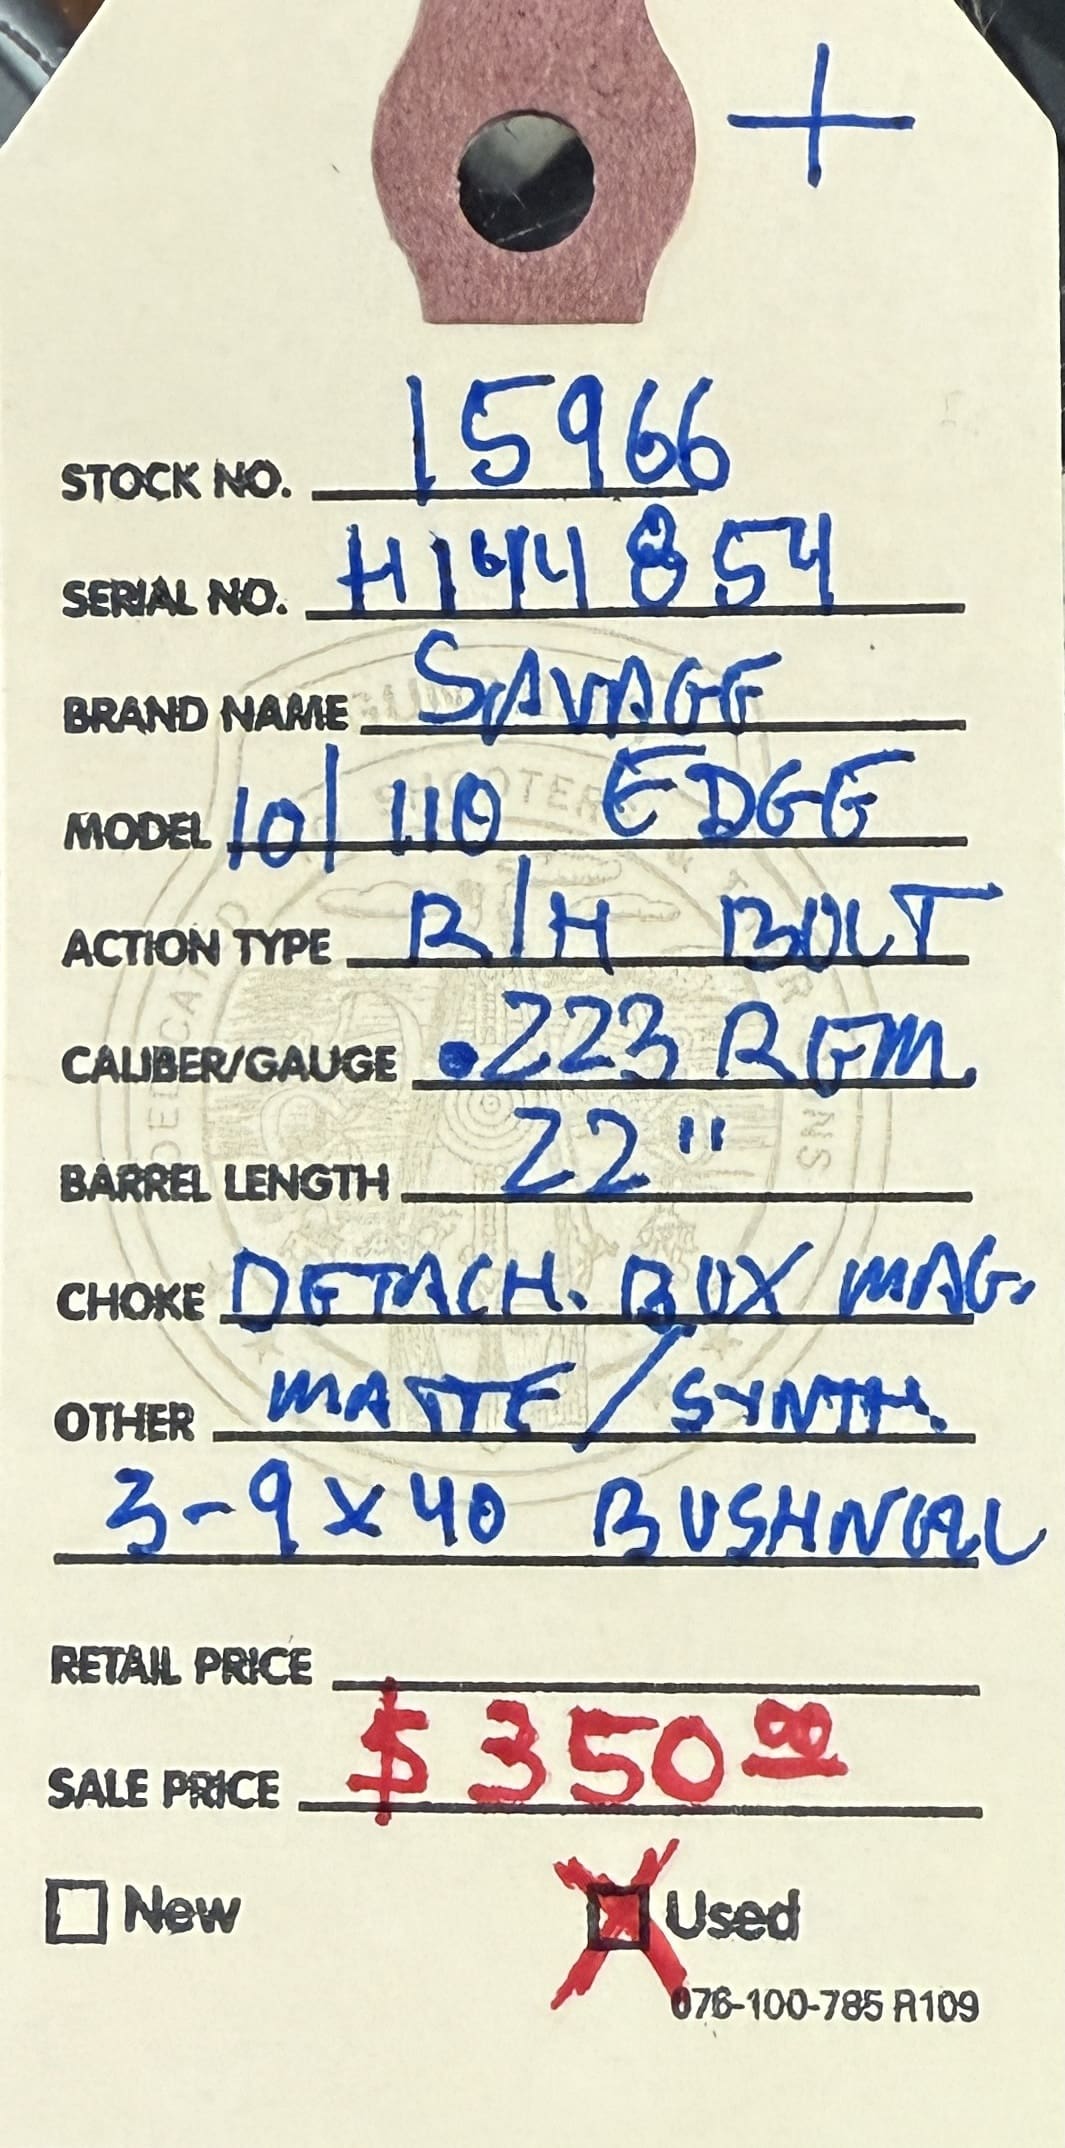 +
STOCK NO. 15966
SERIAL NO. H144854
BRAND NAME SAVAGE
MODEL 10/110 EDGE
ACTION TYPE R/H BOLT
CALIBER/GAUGE .223 REM.
BARREL LENGTH 22"
CHOKE DETACH. BOX MAG.
OTHER MATTE/SYNTH.
3-9X40 BUSHNELL
RETAIL PRICE
SALE PRICE $350.00
New Used
076-100-785 R109